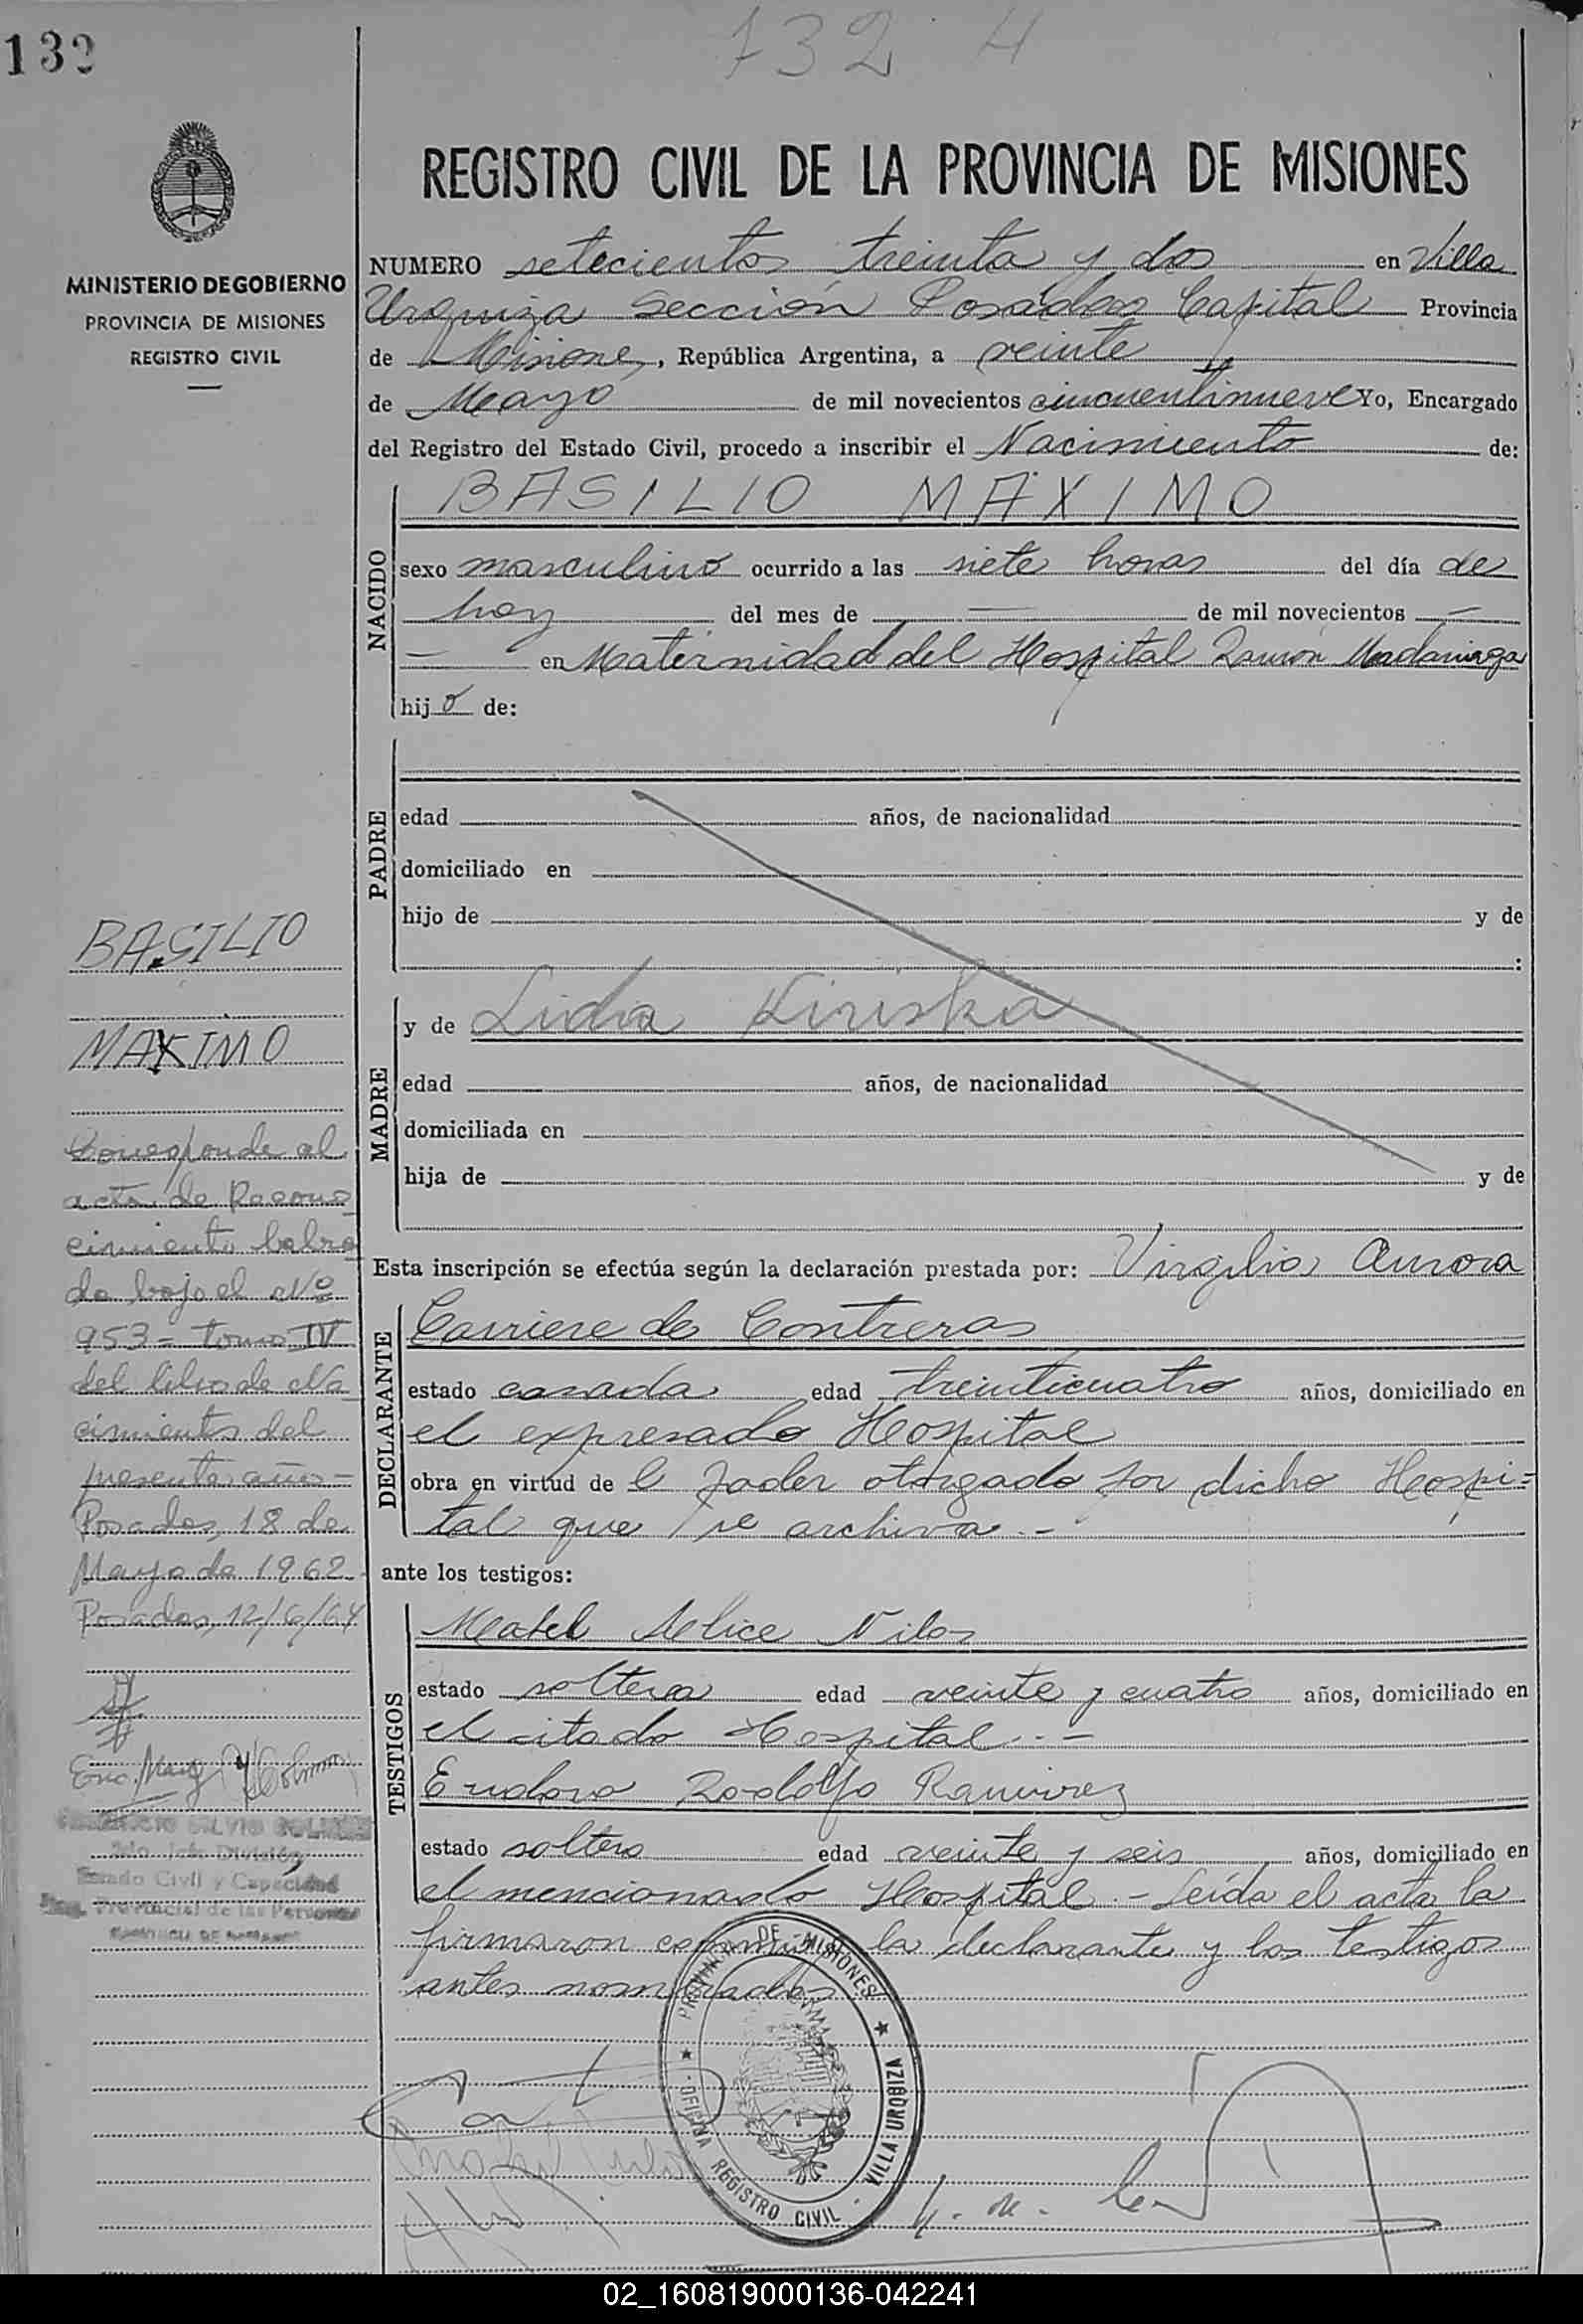 132
732 4
MINISTERIO DE GOBIERNO
PROVINCIA DE MISIONES
REGISTRO CIVIL
REGISTRO CIVIL DE LA PROVINCIA DE MISIONES
NUMERO setecientos treinta y dos en Villa
Urquiza Sección Posadas Capital Provincia
de Misiones, República Argentina, a veinte
de Mayo de mil novecientos cincuentinueve Yo, Encargado
del Registro del Estado Civil, procedo a inscribir el Nacimiento de:
NACIDO
BASILIO MAXIMO
sexo masculino ocurrido a las siete horas del día de
hoy del mes de — de mil novecientos —
— en Maternidad del Hospital Ramón Madariaga
hijo de:
PADRE
edad años, de nacionalidad
domiciliado en
hijo de y de
:
MADRE
y de Lidia Kiriska
edad años, de nacionalidad
domiciliada en
hija de y de
Esta inscripción se efectúa según la declaración prestada por: Virgilia Aurora
DECLARANTE
Carriere de Contreras
estado casada edad treinticuatro años, domiciliado en
el expresado Hospital
obra en virtud de el poder otorgado por dicho Hospi=
tal que se archiva.-
ante los testigos:
TESTIGOS
Mabel Alice Nilos
estado soltera edad veinte y cuatro años, domiciliado en
el citado Hospital.-
Eudoro Rodolfo Ramirez
estado soltero edad veinte y seis años, domiciliado en
el mencionado Hospital.- Leída el acta la
firmaron conmigo la declarante y los testigos
antes nombrados
BASILIO
MAXIMO
Corresponde al
acta de Recono
cimiento labra
do bajo el Nº
953= tomo IV
del libro de Na
cimientos del
presente año=
Posadas, 18 de
Mayo de 1962
Posadas, 12/6/64
SILVIO
División
Estado Civil y Capacidad
Provincial de las Personas
PROVINCIA DE MISIONES
PROVINCIA DE MISIONES
OFICINA REGISTRO CIVIL · VILLA URQUIZA
02_160819000136-042241